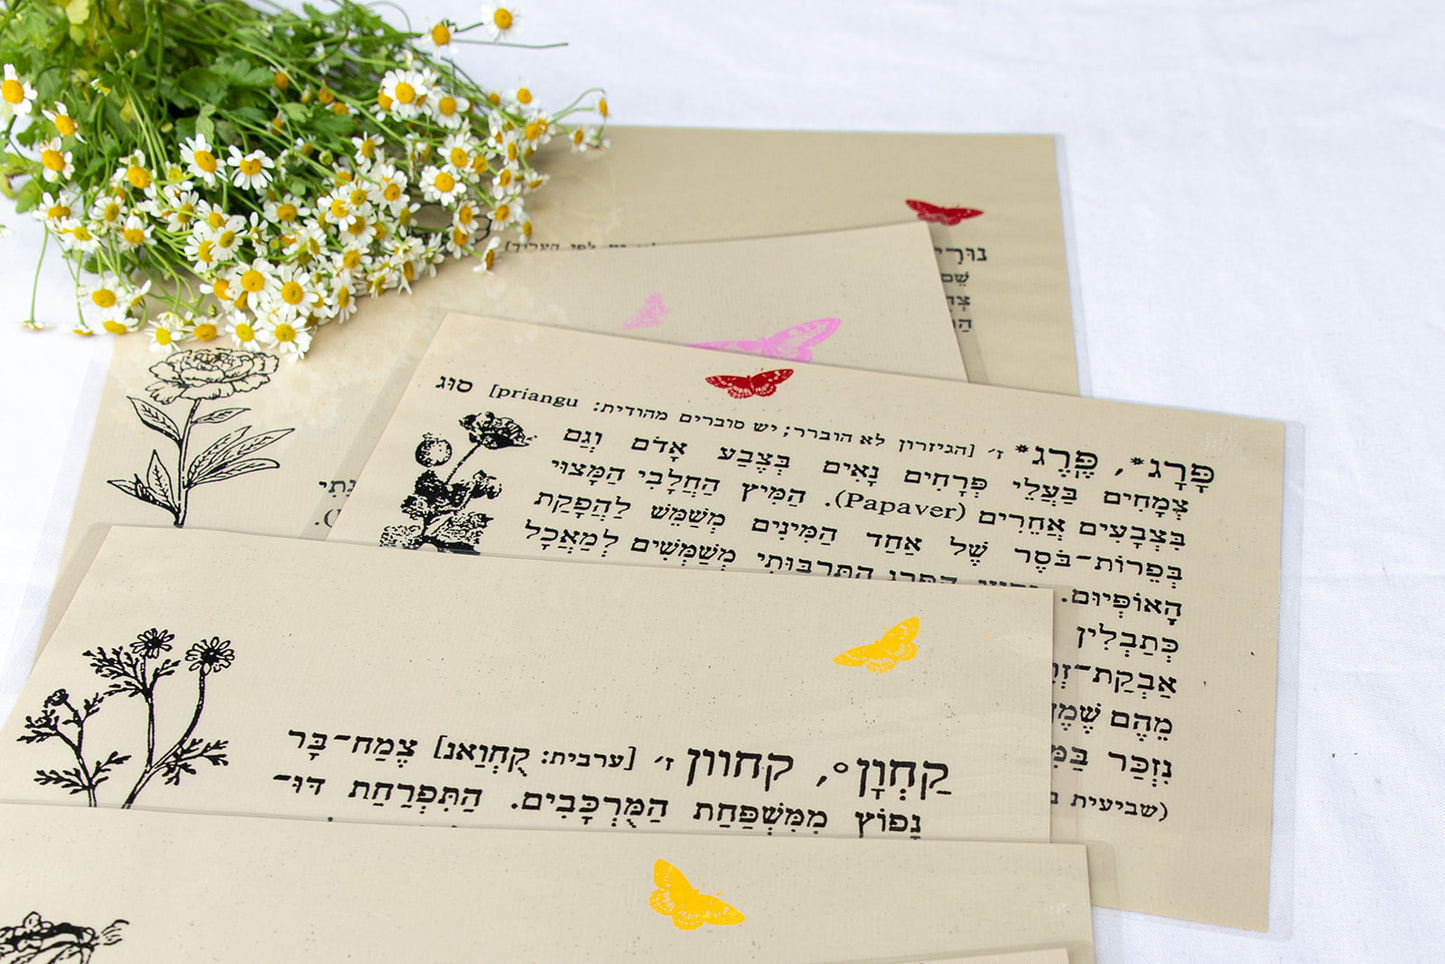 נוּרִי
שֵׁם
פָּרָג*, פֶּרֶג* ז׳ [הגיזרון לא הוברר; יש סוברים מהודית: priangu] סוּג
צְמָחִים בַּעֲלֵי פְּרָחִים נָאִים בְּצֶבַע אָדֹם וְגַם
בִּצְבָעִים אֲחֵרִים (Papaver). הַמִּיץ הַחֲלָבִי הַמָּצוּי
בְּפֵרוֹת־בֹּסֶר שֶׁל אַחַד הַמִּינִים מְשַׁמֵּשׁ לַהֲפָקַת
הָאוֹפְּיוּם. הַפָּרָג הַתַּרְבּוּתִי מְשַׁמְּשִׁים לְמַאֲכָל
כְּתַבְלִין
אַבְקַת־
מֵהֶם
נִזְכַּר
(שביעית
קַחְוָן°, קחוון ז׳ [ערבית: קֻחְוַאנ] צֶמַח־בָּר
נָפוֹץ מִמִּשְׁפַּחַת הַמֻּרְכָּבִים. הַתִּפְרַחַת דּוּ־